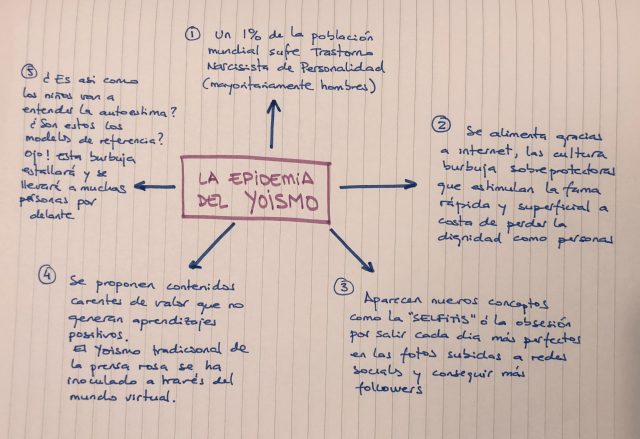 ① Un 1% de la población
mundial sufre Trastorno
Narcisista de Personalidad
(mayoritariamente hombres)
② Se alimenta gracias
a internet, las cultura
burbuja sobreprotectoras
que estimulan la fama
rápida y superficial a
costa de perder la
dignidad como personas
③ Aparecen nuevos conceptos
como la "SELFITIS" ó la obsesión
por salir cada dia más perfectos
en las fotos subidas a redes
socials y conseguir más
followers
④ Se proponen contenidos
carentes de valor que no
generan aprendizajes
positivos.
El Yoismo tradicional de
la prensa rosa se ha
inoculado a través del
mundo virtual.
⑤ ¿Es asi como
los niños van a
entender la autoestima?
¿Son estos los
modelos de referencia?
Ojo! esta burbuja
estallará y se
llevará a muchas
personas por
delante
LA EPIDEMIA
DEL YOISMO